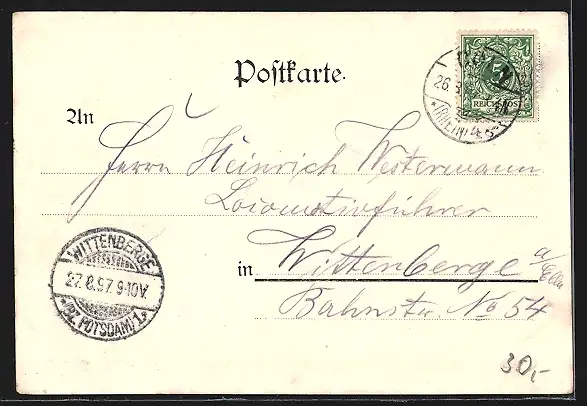 Postkarte.
5
REICHSPOST
26
(RHEIN)
An
Herrn Heinrich Westermann
Locomotivführer
in Wittenberge a/Elbe
Bahnstr. No 54
WITTENBERGE
27.8.97. 9-10V.
*(BZ. POTSDAM) 1*
30,-